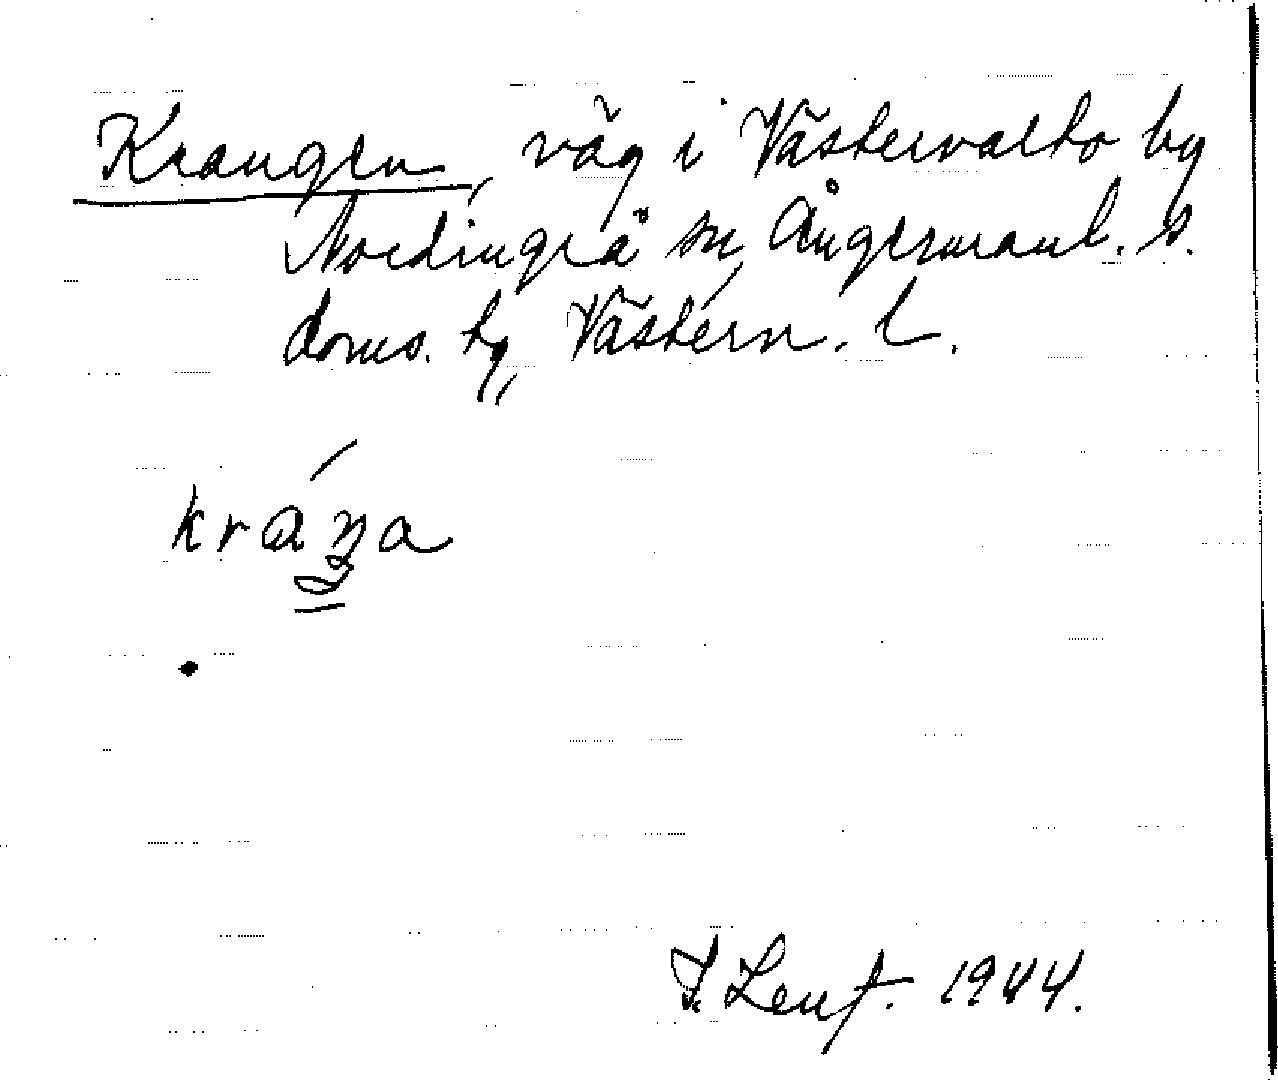 Krangen, väg i Västervalto by
Nordingrå sn, Ångermanl. s.
doms. hg, Västern. l.
kráŋa
1944.